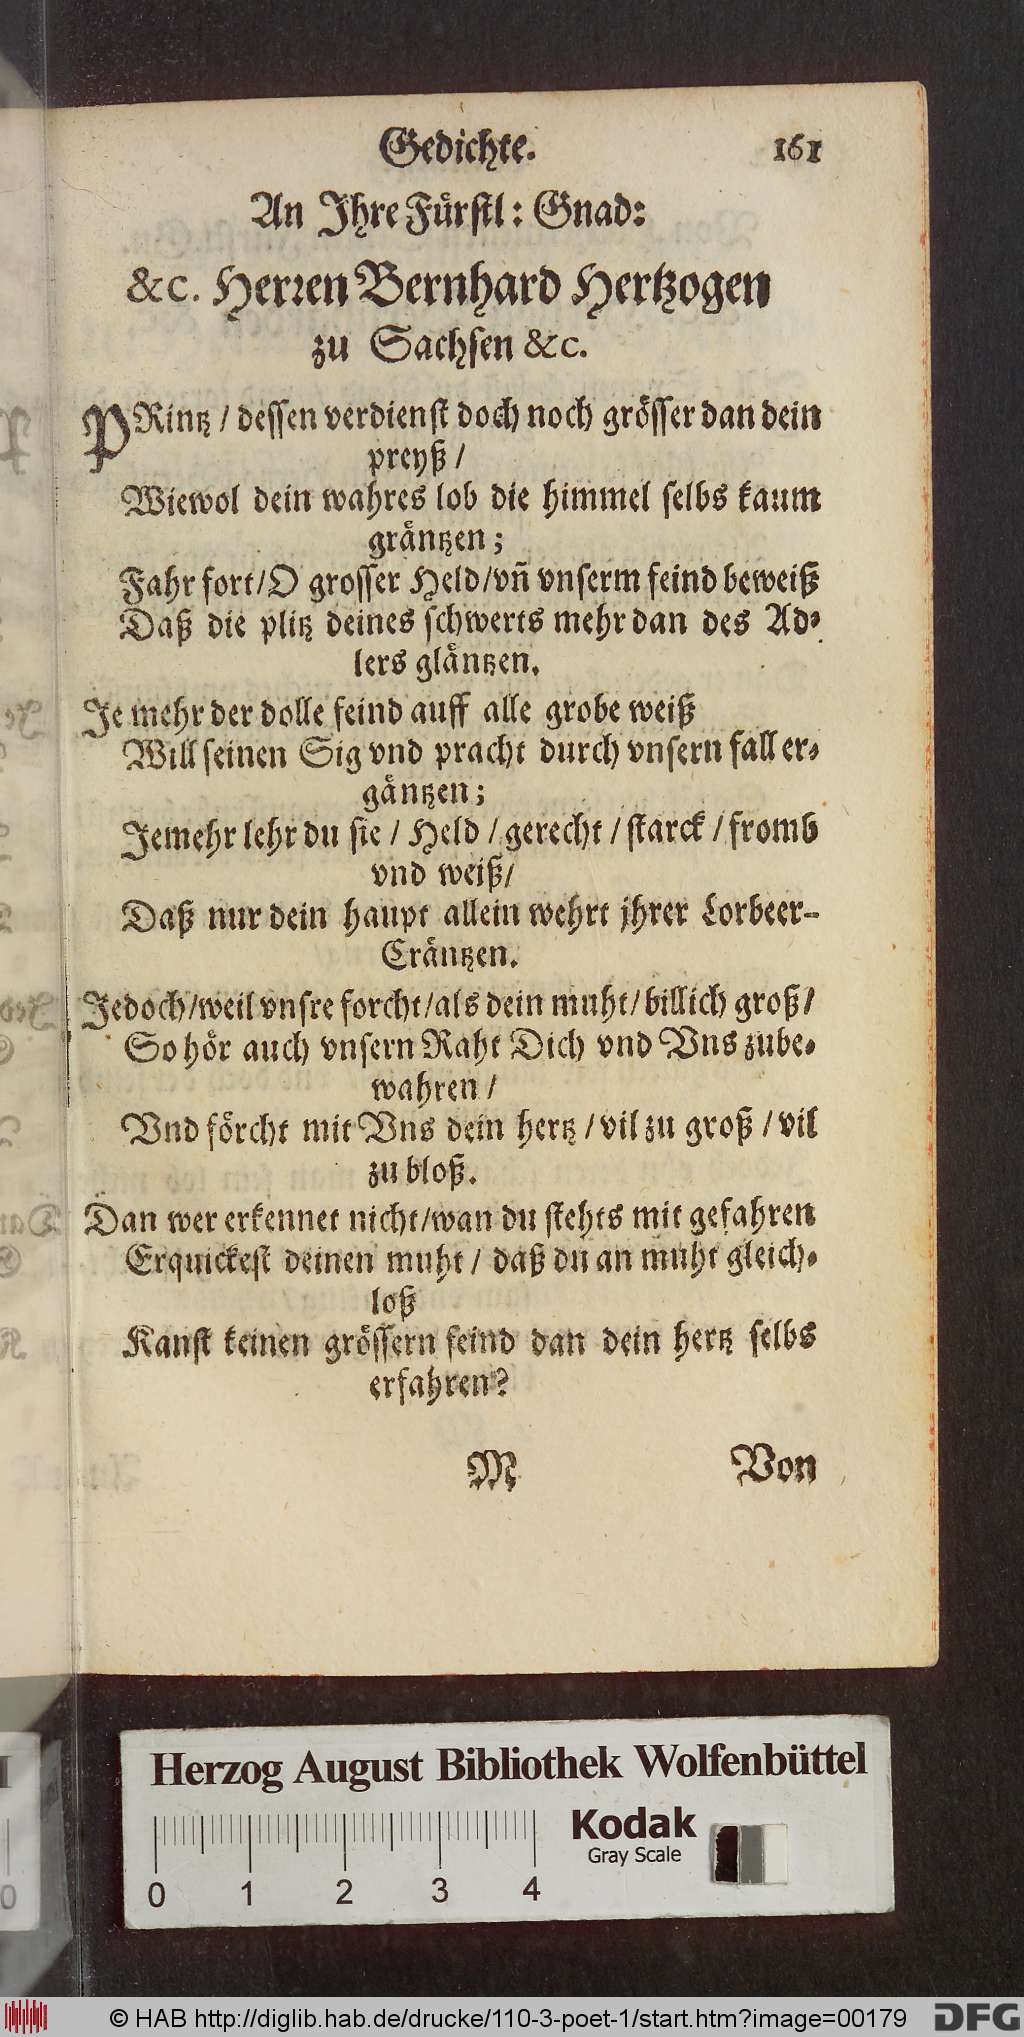 Gedichte. 161
An Ihre Fürstl: Gnad:
&c. Herren Bernhard Hertzogen
zu Sachsen &c.
PRintz / dessen verdienst doch noch grösser dan dein
preyß /
Wiewol dein wahres lob die himmel selbs kaum
gräntzen ;
Fahr fort/O grosser Held/vñ vnserm feind beweiß
Daß die plitz deines schwerts mehr dan des Ad-
lers gläntzen.
Je mehr der dolle feind auff alle grobe weiß
Will seinen Sig vnd pracht durch vnsern fall er-
gäntzen ;
Jemehr lehr du sie / Held / gerecht / starck / fromb
vnd weiß/
Daß nur dein haupt allein wehrt jhrer Lorbeer-
Cräntzen.
Jedoch/weil vnsre forcht/als dein muht/billich groß/
So hör auch vnsern Raht Dich vnd Vns zube-
wahren /
Vnd förcht mit Vns dein hertz / vil zu groß / vil
zu bloß.
Dan wer erkennet nicht/wan du stehts mit gefahren
Erquickest deinen muht / daß du an muht gleich-
loß
Kanst keinen grössern feind dan dein hertz selbs
erfahren?
M Von
Herzog August Bibliothek Wolfenbüttel
Kodak
Gray Scale
0 1 2 3 4
© HAB http://diglib.hab.de/drucke/110-3-poet-1/start.htm?image=00179 DFG